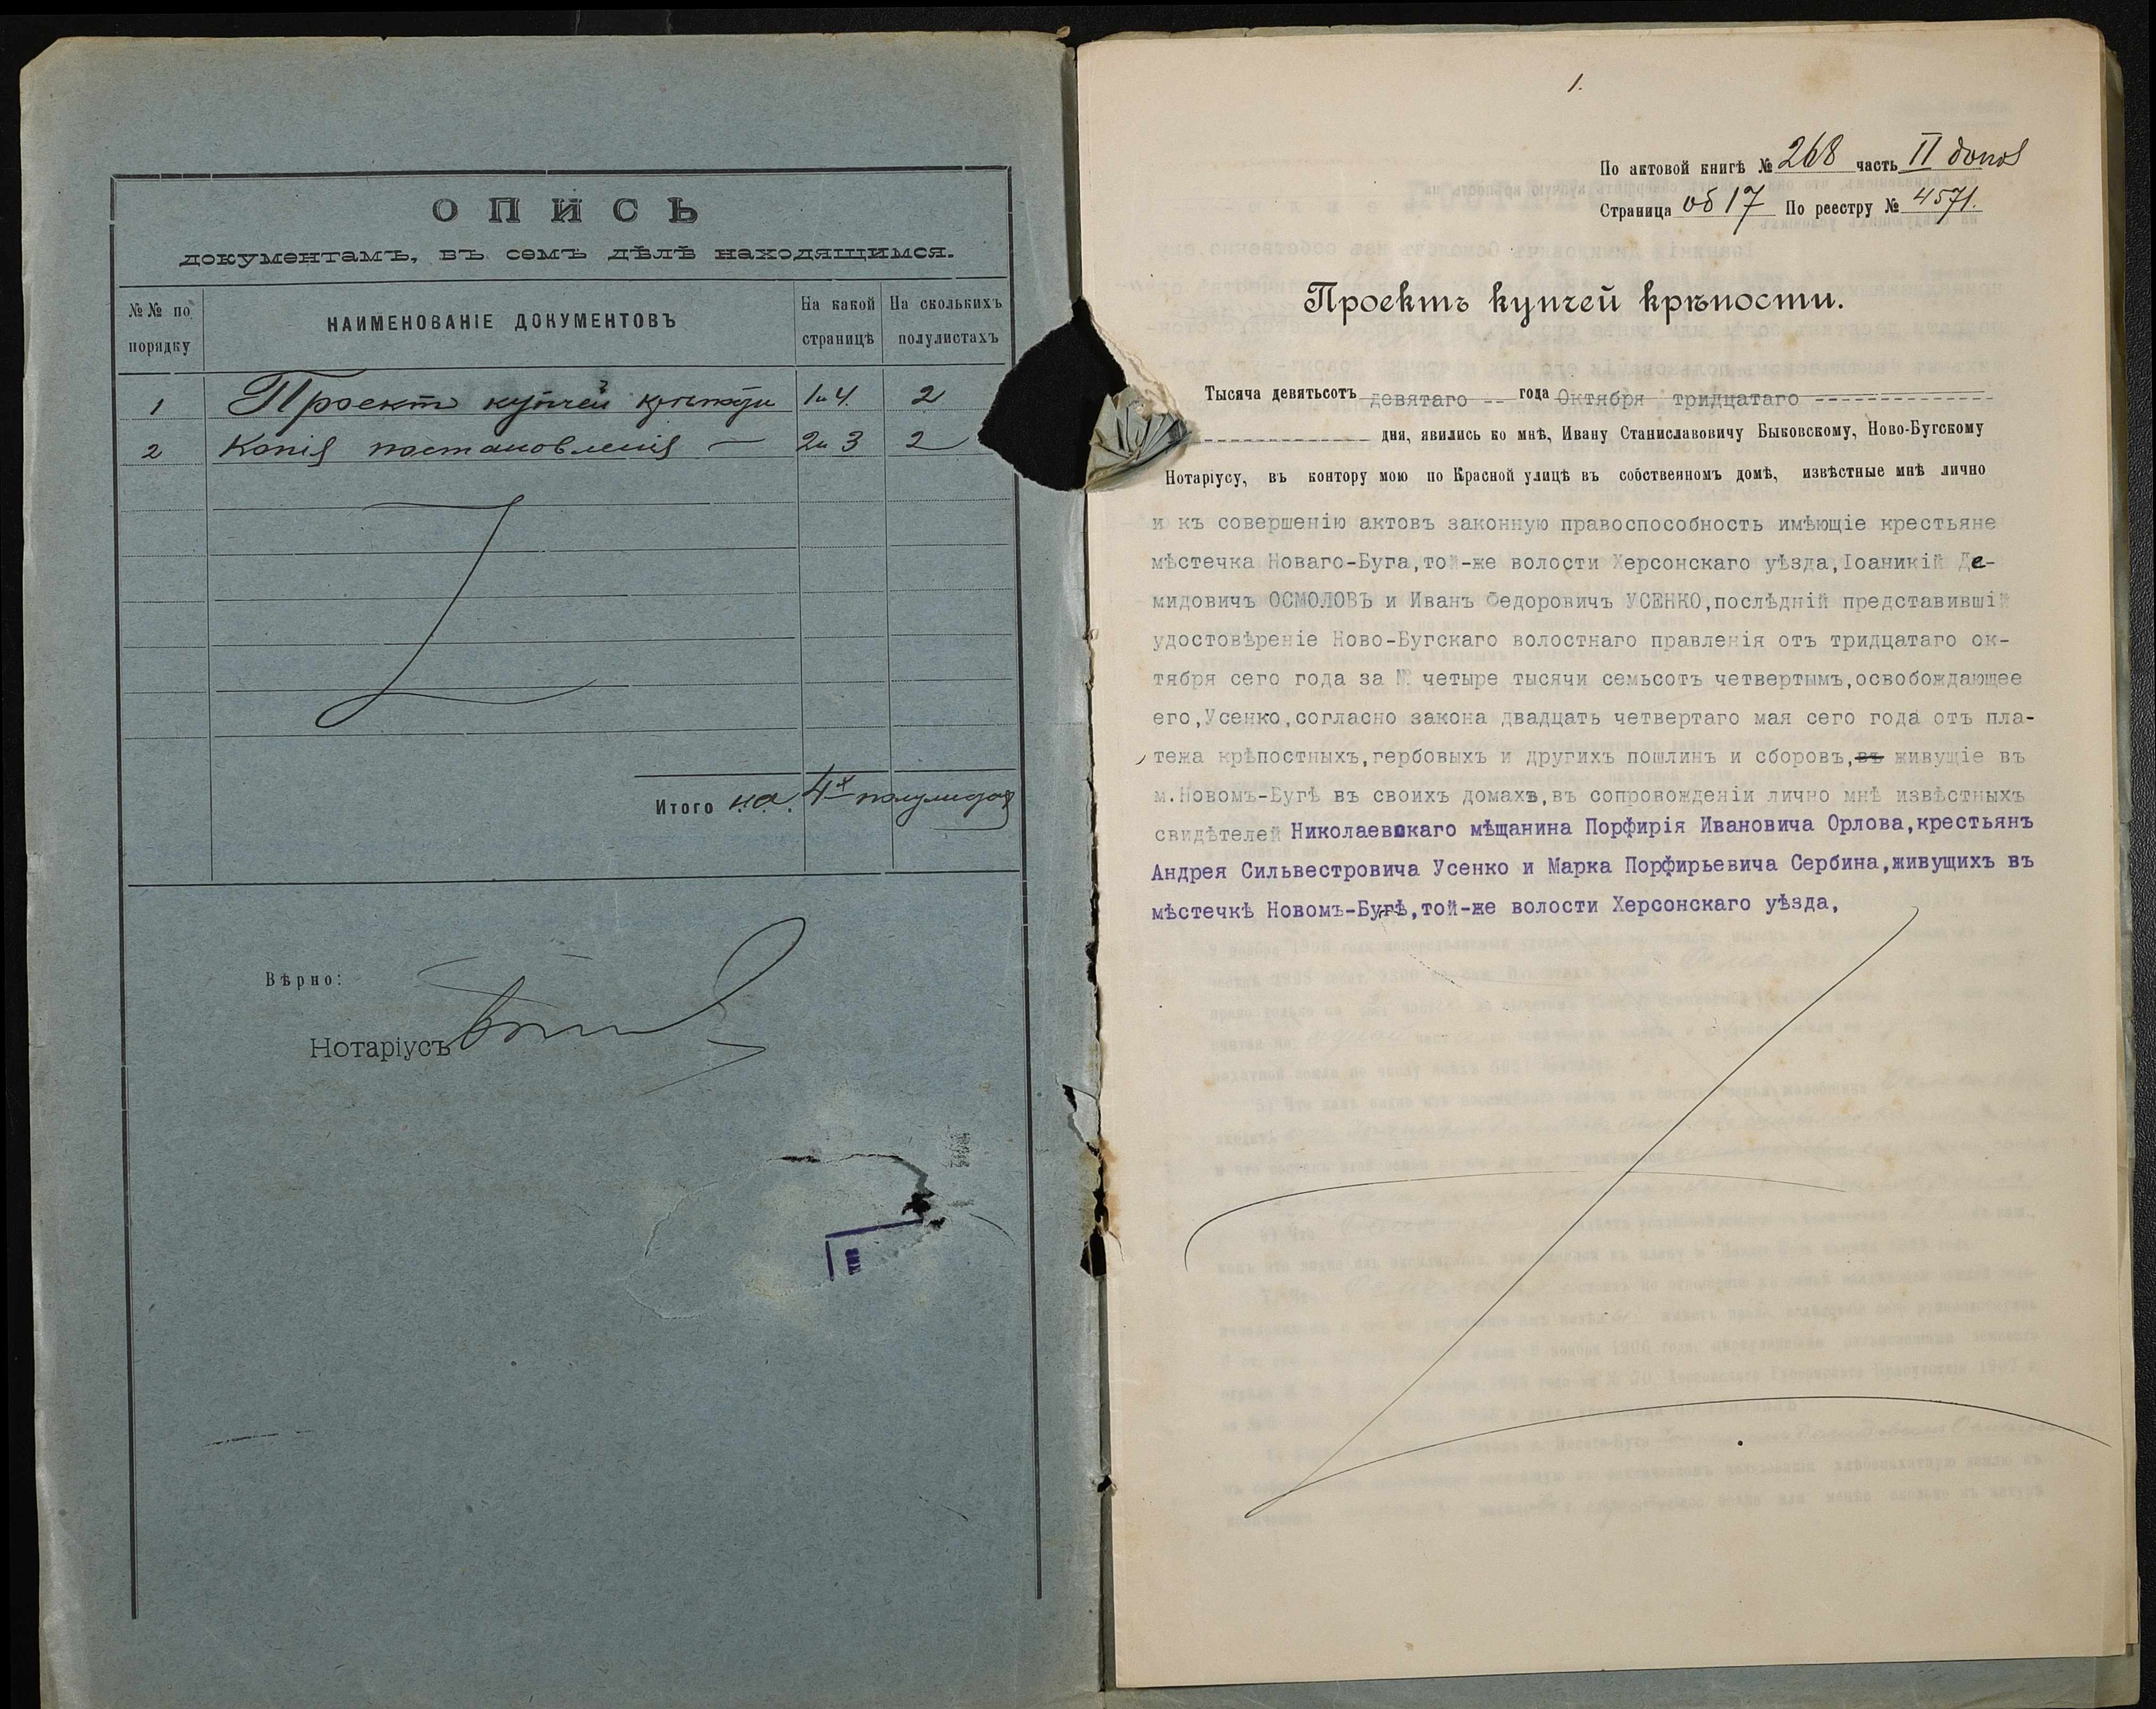 ОПИСЬ
документамъ, въ семъ дѣлѣ находящимся.
№№ по порядку
НАИМЕНОВАНІЕ ДОКУМЕНТОВЪ
На какой страницѣ
На сколькихъ полулистахъ
1 Проектъ купчей крѣпости 1 и 4. 2
2 Копія постановленія 2 и 3 2
Итого на 4х полулистах
Вѣрно:
Нотаріусъ
1.
По актовой книгѣ № 268 часть II допол
Страница об 17 По реестру № 4571.
Проектъ купчей крѣпости.
Тысяча девятьсотъ девятаго -- года Октября тридцатаго
дня, явились ко мнѣ, Ивану Станиславовичу Быковскому, Ново-Бугскому
Нотаріусу, въ контору мою по Красной улицѣ въ собственномъ домѣ, извѣстные мнѣ лично
и къ совершенію актовъ законную правоспособность имѣющіе крестьяне
мѣстечка Новаго-Буга,той-же волости Херсонскаго уѣзда,Іоаникій Де-
мидовичъ ОСМОЛОВЪ и Иванъ Федоровичъ УСЕНКО,послѣдній представившій
удостовѣреніе Ново-Бугскаго волостнаго правленія отъ тридцатаго ок-
тября сего года за № четыре тысячи семьсотъ четвертымъ,освобождающее
его,Усенко,согласно закона двадцать четвертаго мая сего года отъ пла-
тежа крѣпостныхъ,гербовыхъ и другихъ пошлинъ и сборовъ,въ живущіе въ
м.Новомъ-Бугѣ въ своихъ домахъ,въ сопровожденіи лично мнѣ извѣстныхъ
свидѣтелей Николаевскаго мѣщанина Порфирія Ивановича Орлова,крестьянъ
Андрея Сильвестровича Усенко и Марка Порфирьевича Сербина,живущихъ въ
мѣстечкѣ Новомъ-Бугѣ,той-же волости Херсонскаго уѣзда,